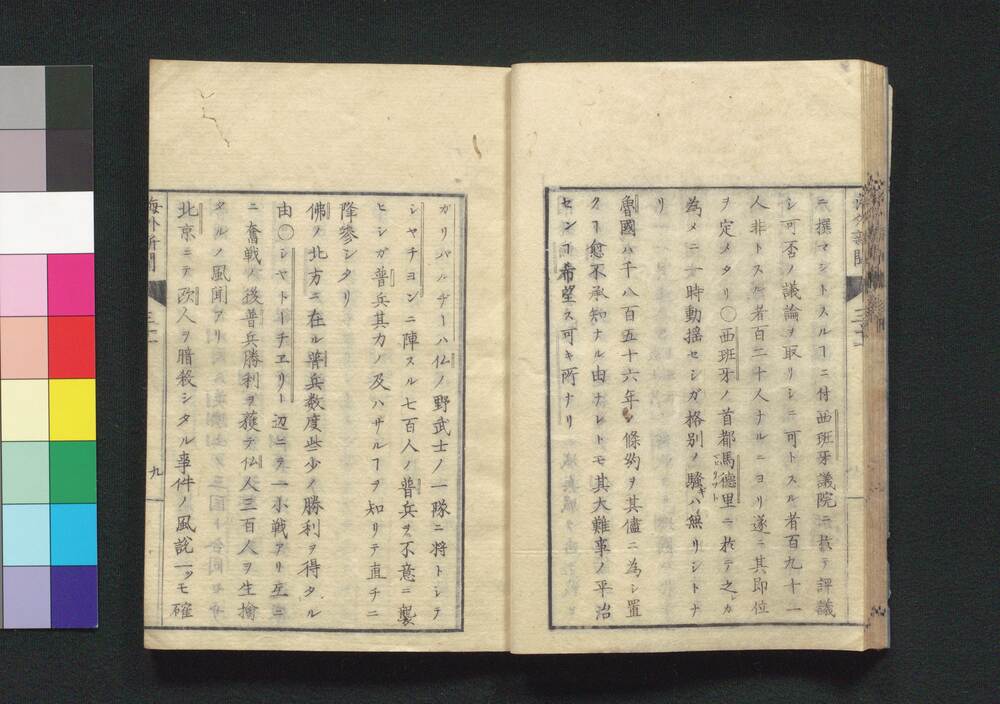 ニ撰マントスルヿニ付西班牙議院ニ於テ評議
シ可否ノ議論ヲ取リシニ可トスル者百九十一
人非トスル者百二十人ナルニヨリ遂ニ其即位
ヲ定メタリ〇西班牙ノ首都馬德里ニ於テ之カ
為メニ一時動揺セシガ格別ノ騒ハ無リシトナ
リ
魯國ハ千八百五十六年ノ條約ヲ其儘ニ為シ置
クヿ愈不承知ナル由ナレトモ其大難事ノ平治
センヿ希望ス可キ所ナリ
ガリバルヂーハ仏ノ野武士ノ一隊ニ将トシテ
シャチヨンニ陣スル七百人ノ普兵ヲ不意ニ襲
ヒシガ普兵其力ノ及ハサルヿヲ知リテ直チニ
降參シタリ
佛ノ北方ニ在ル普兵数度些少ノ勝利ヲ得タル
由〇シャトーチエリー辺ニテ一小戦アリ互ニ
ニ奮戦ノ後普兵勝利ヲ獲テ仏人三百人ヲ生擒
タルノ風聞アリ
北京ニテ欧人ヲ暗殺シタル事件ノ風説一ツモ確
海外新聞
九